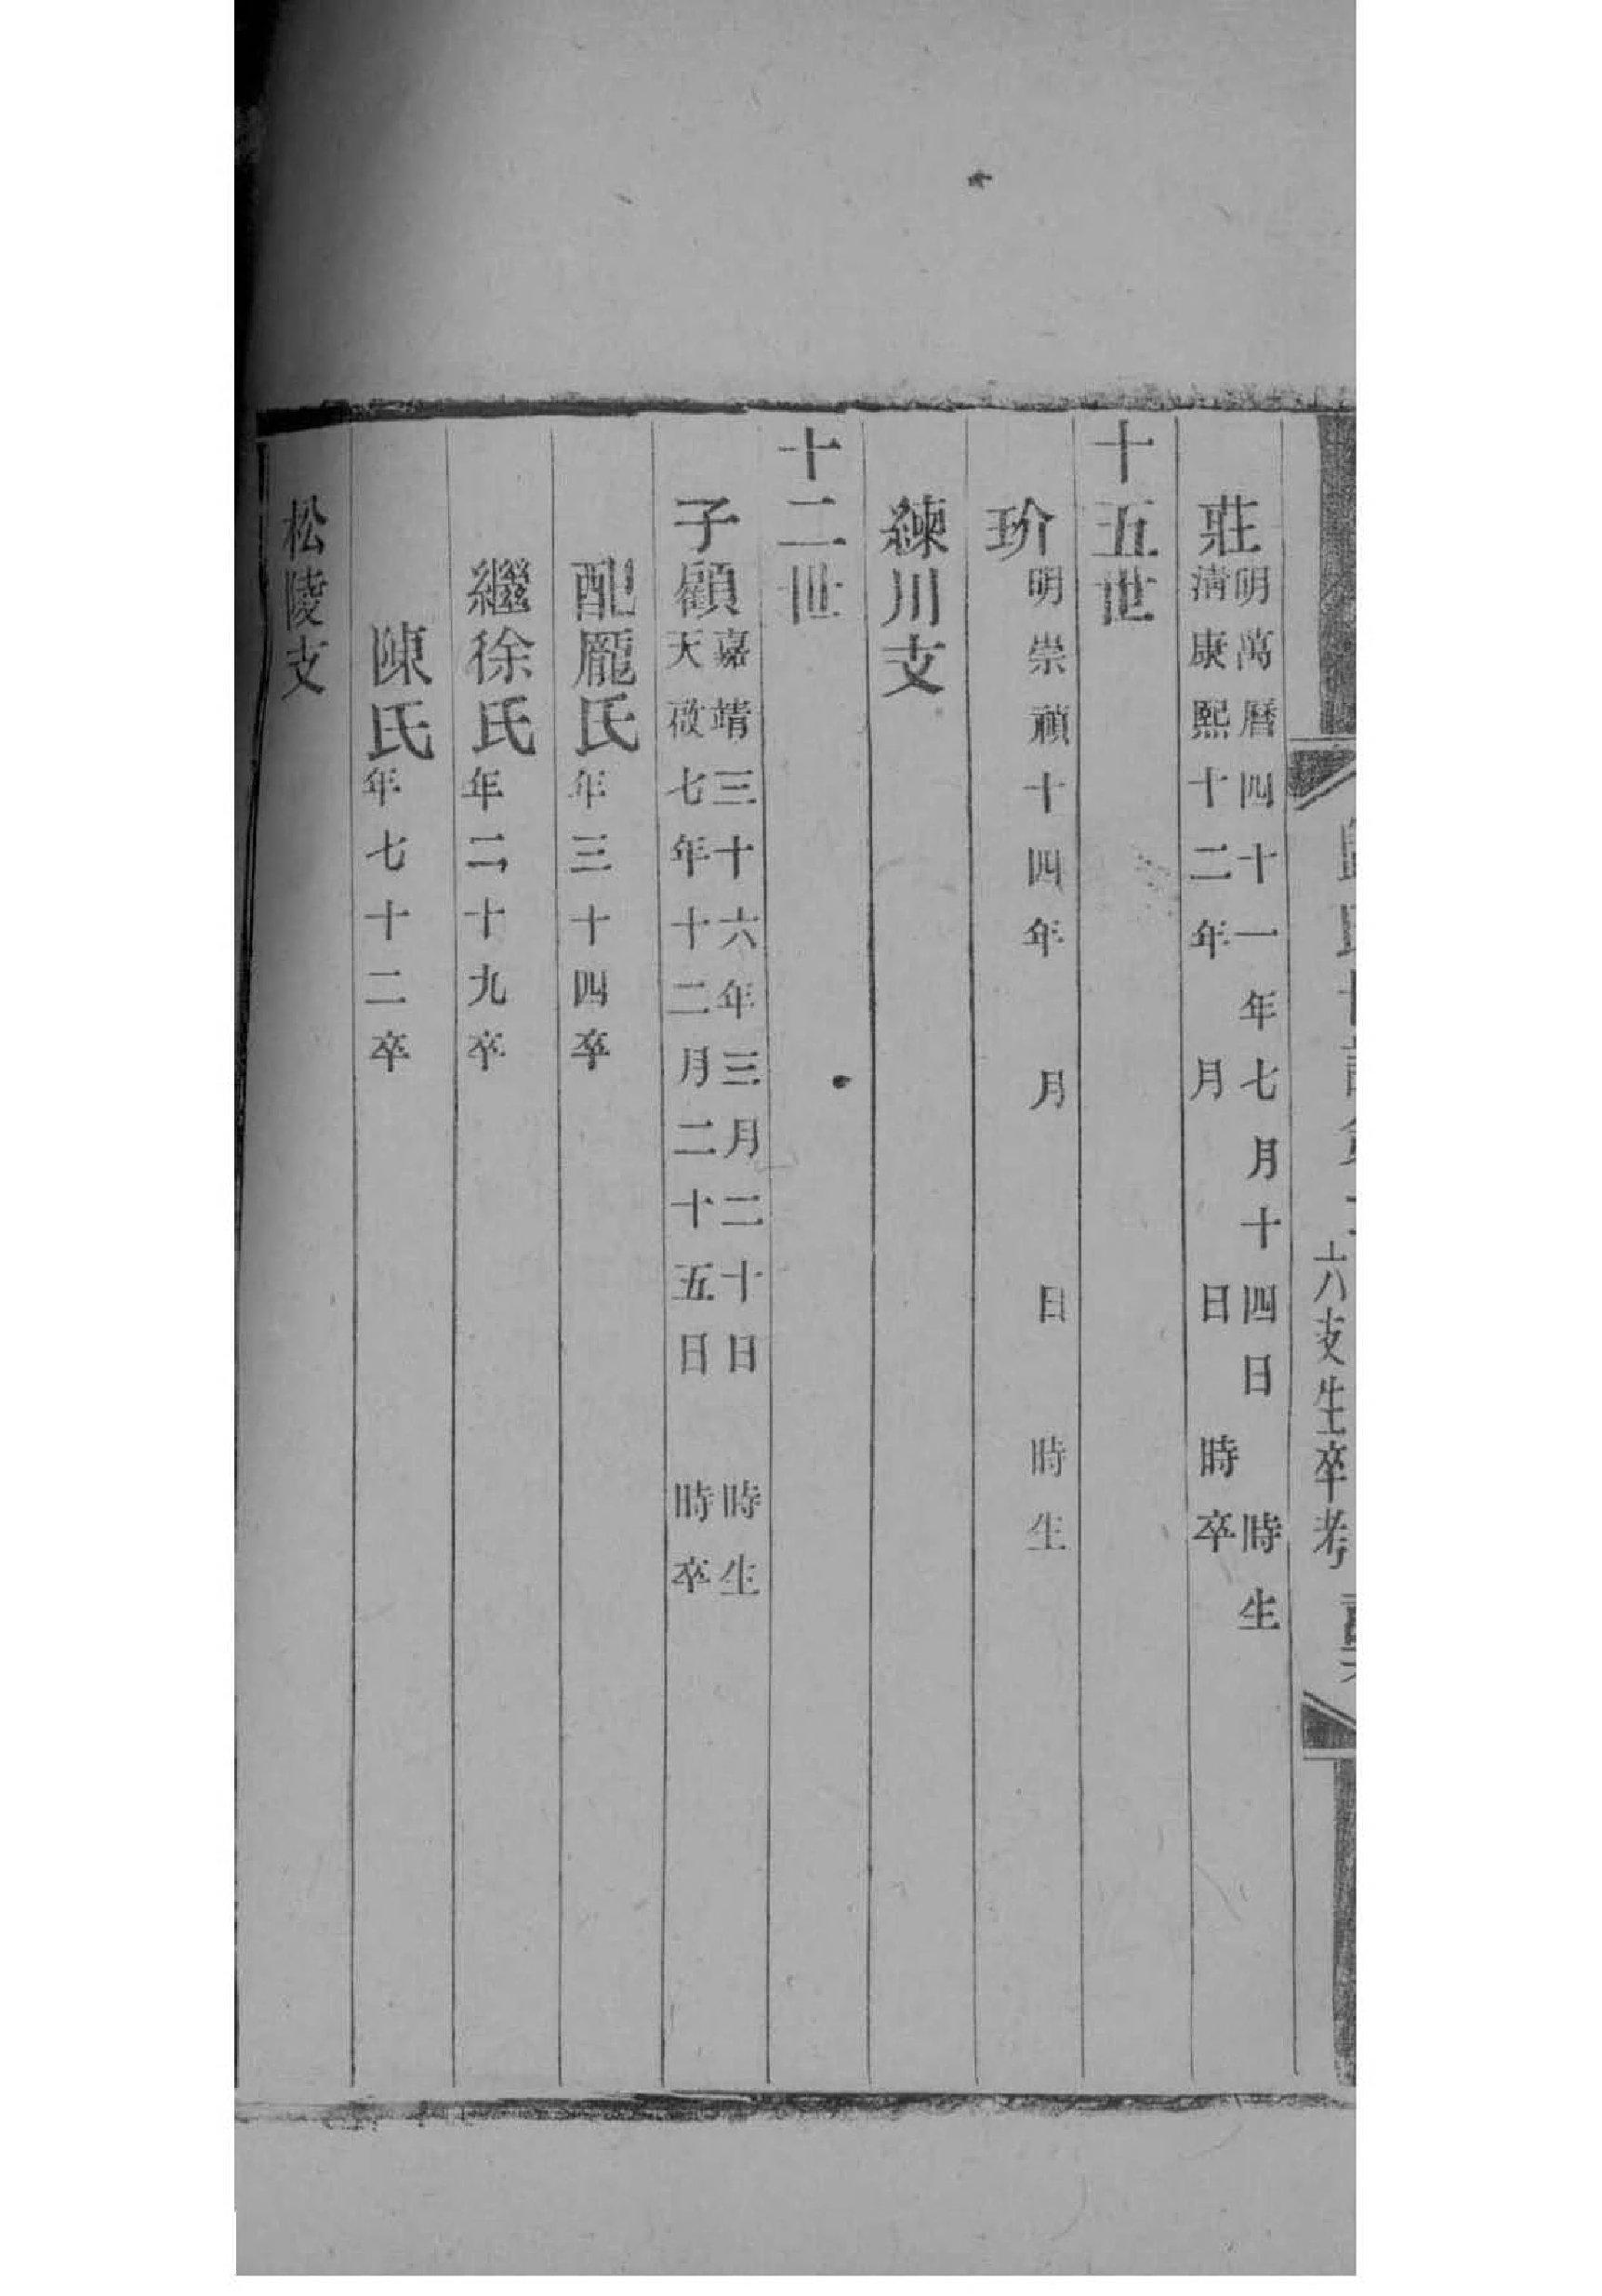 六支生卒考
莊 明萬曆四十一年七月十四日 時生
清康熙十二年 月 日 時卒
十五世
玠 明崇禎十四年 月 日 時生
練川支
十二世
子顧 嘉靖三十六年三月二十日 時生
天啟七年十二月二十五日 時卒
配龐氏 年三十四卒
繼徐氏 年二十九卒
陳氏 年七十二卒
松陵支